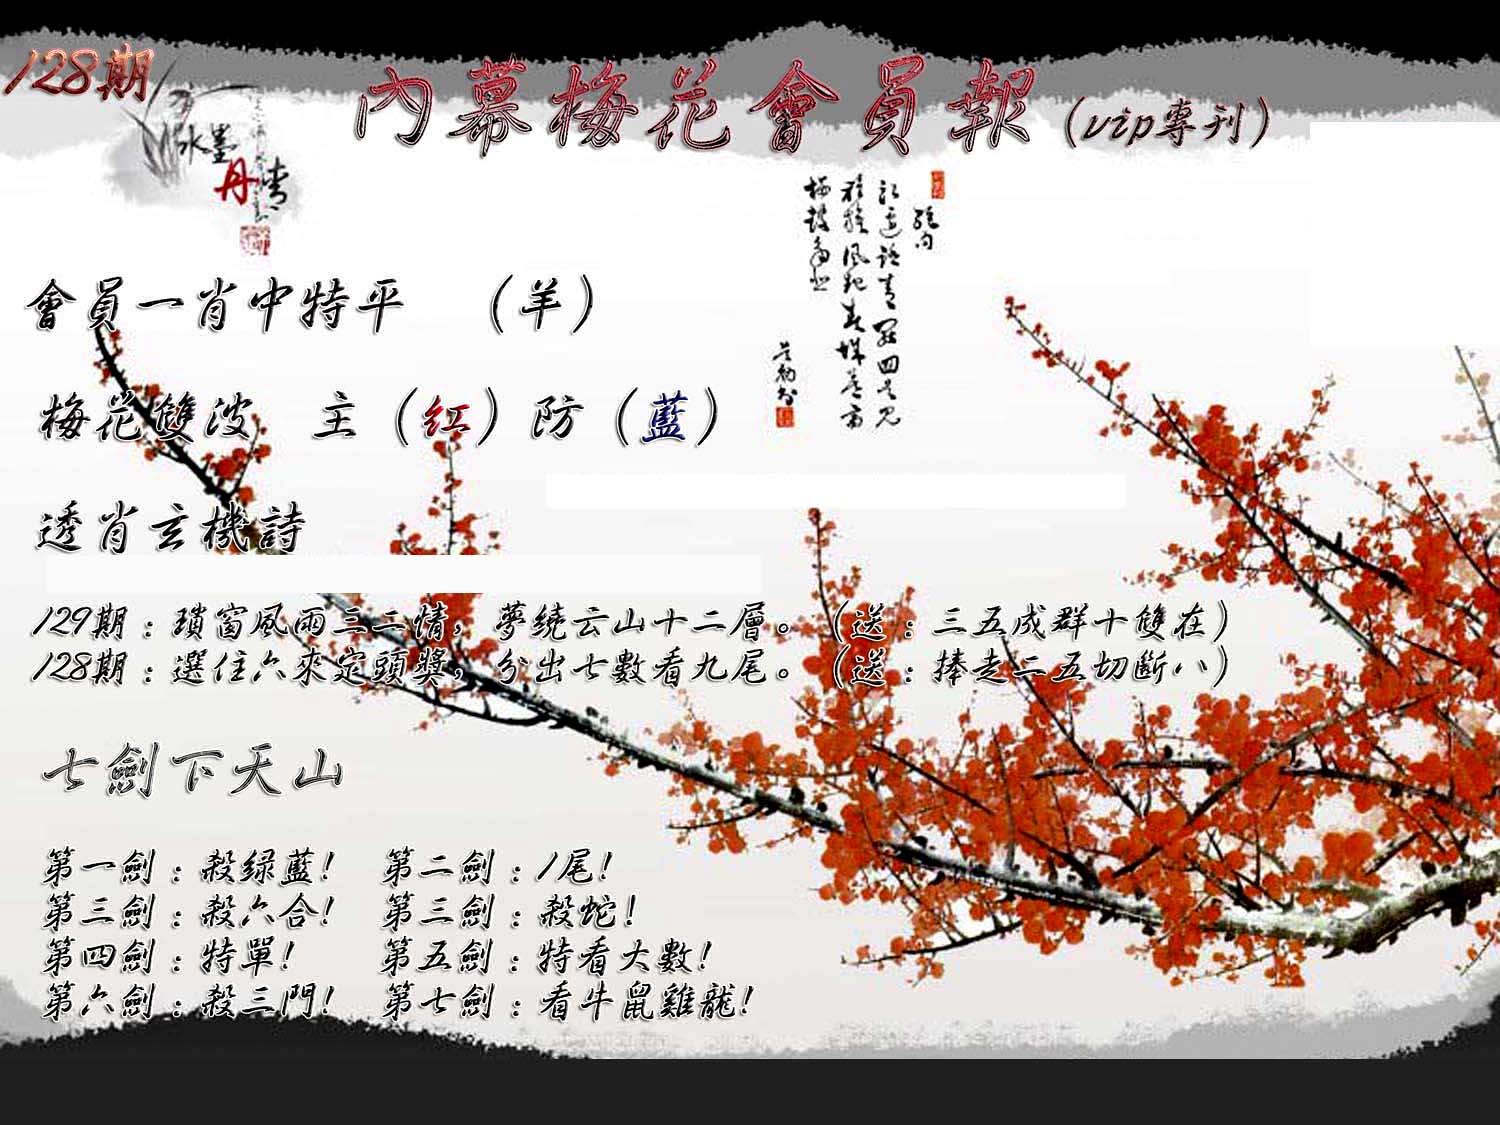 128期
內幕梅花會員報（vip專刊）
水墨
丹青
絕句
會員一肖中特平　（羊）
梅花雙波　主（紅）防（藍）
透肖玄機詩
129期：瑣窗風雨三二情，夢繞云山十二層。（送：三五成群十雙在）
128期：選住六來定頭獎，分出七數看九尾。（送：捧走二五切斷八）
七劍下天山
第一劍：殺绿藍！　第二劍：1尾！
第三劍：殺六合！　第三劍：殺蛇！
第四劍：特單！　第五劍：特看大數！
第六劍：殺三門！　第七劍：看牛鼠雞龍！